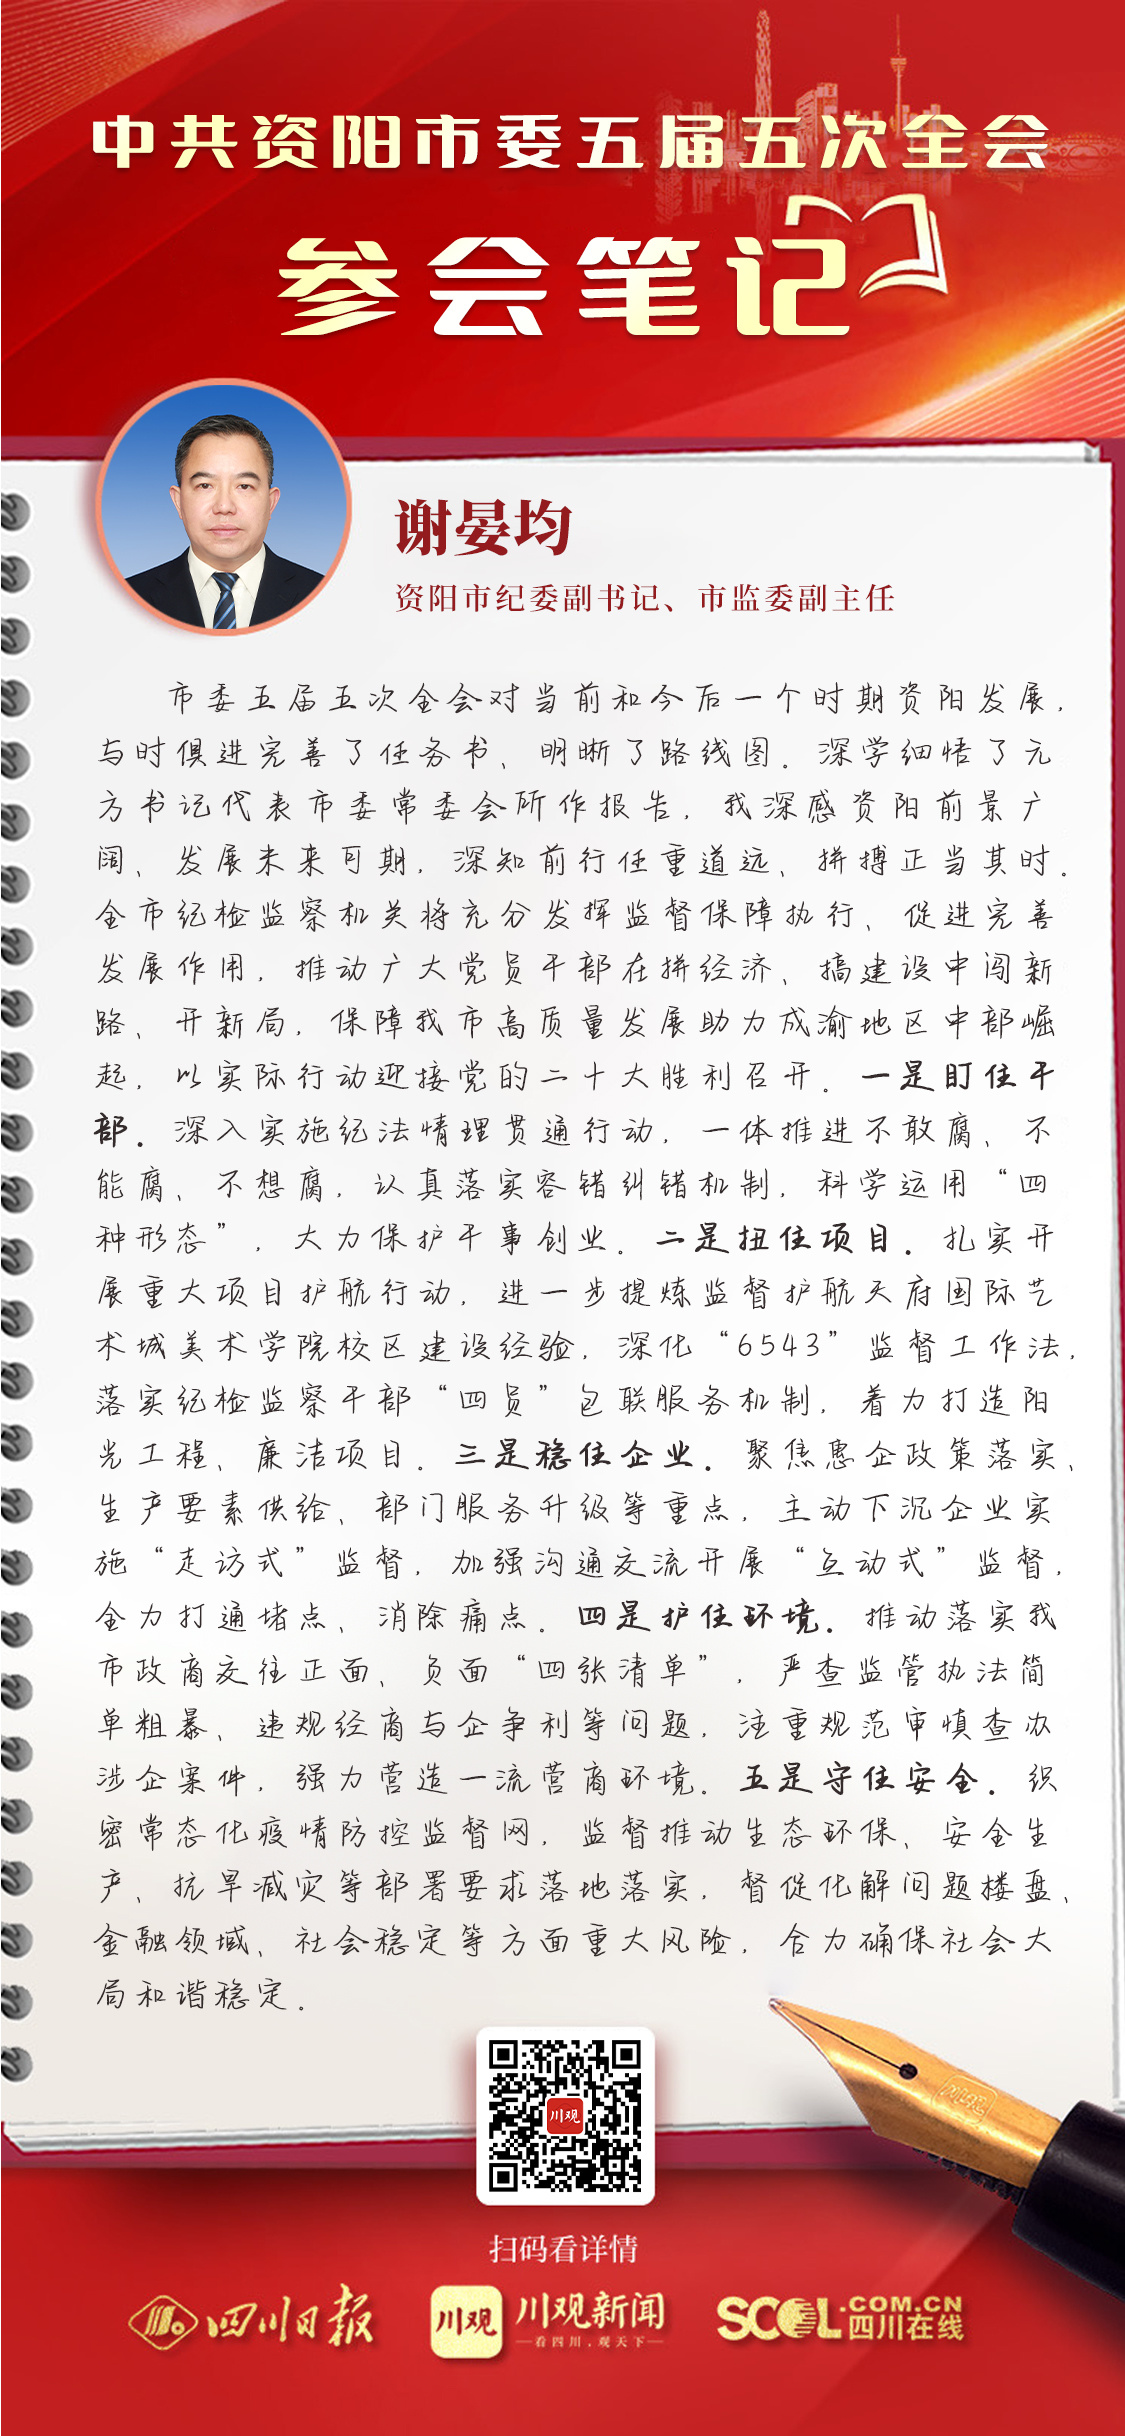 中共资阳市委五届五次全会
参会笔记
谢晏均
资阳市纪委副书记、市监委副主任
市委五届五次全会对当前和今后一个时期资阳发展，
与时俱进完善了任务书、明晰了路线图。深学细悟了元
方书记代表市委常委会所作报告，我深感资阳前景广
阔、发展未来可期，深知前行任重道远、拼搏正当其时。
全市纪检监察机关将充分发挥监督保障执行、促进完善
发展作用，推动广大党员干部在拼经济、搞建设中闯新
路、开新局，保障我市高质量发展助力成渝地区中部崛
起，以实际行动迎接党的二十大胜利召开。一是盯住干
部。深入实施纪法情理贯通行动，一体推进不敢腐、不
能腐、不想腐，认真落实容错纠错机制，科学运用“四
种形态”，大力保护干事创业。二是扭住项目。扎实开
展重大项目护航行动，进一步提炼监督护航天府国际艺
术城美术学院校区建设经验，深化“6543”监督工作法，
落实纪检监察干部“四员”包联服务机制，着力打造阳
光工程、廉洁项目。三是稳住企业。聚焦惠企政策落实、
生产要素供给、部门服务升级等重点，主动下沉企业实
施“走访式”监督，加强沟通交流开展“互动式”监督，
全力打通堵点、消除痛点。四是护住环境。推动落实我
市政商交往正面、负面“四张清单”，严查监管执法简
单粗暴、违规经商与企争利等问题，注重规范审慎查办
涉企案件，强力营造一流营商环境。五是守住安全。织
密常态化疫情防控监督网，监督推动生态环保、安全生
产、抗旱减灾等部署要求落地落实，督促化解问题楼盘、
金融领域、社会稳定等方面重大风险，合力确保社会大
局和谐稳定。
川观
扫码看详情
四川日报
川观 川观新闻
看四川，观天下
SCOL.COM.CN
四川在线